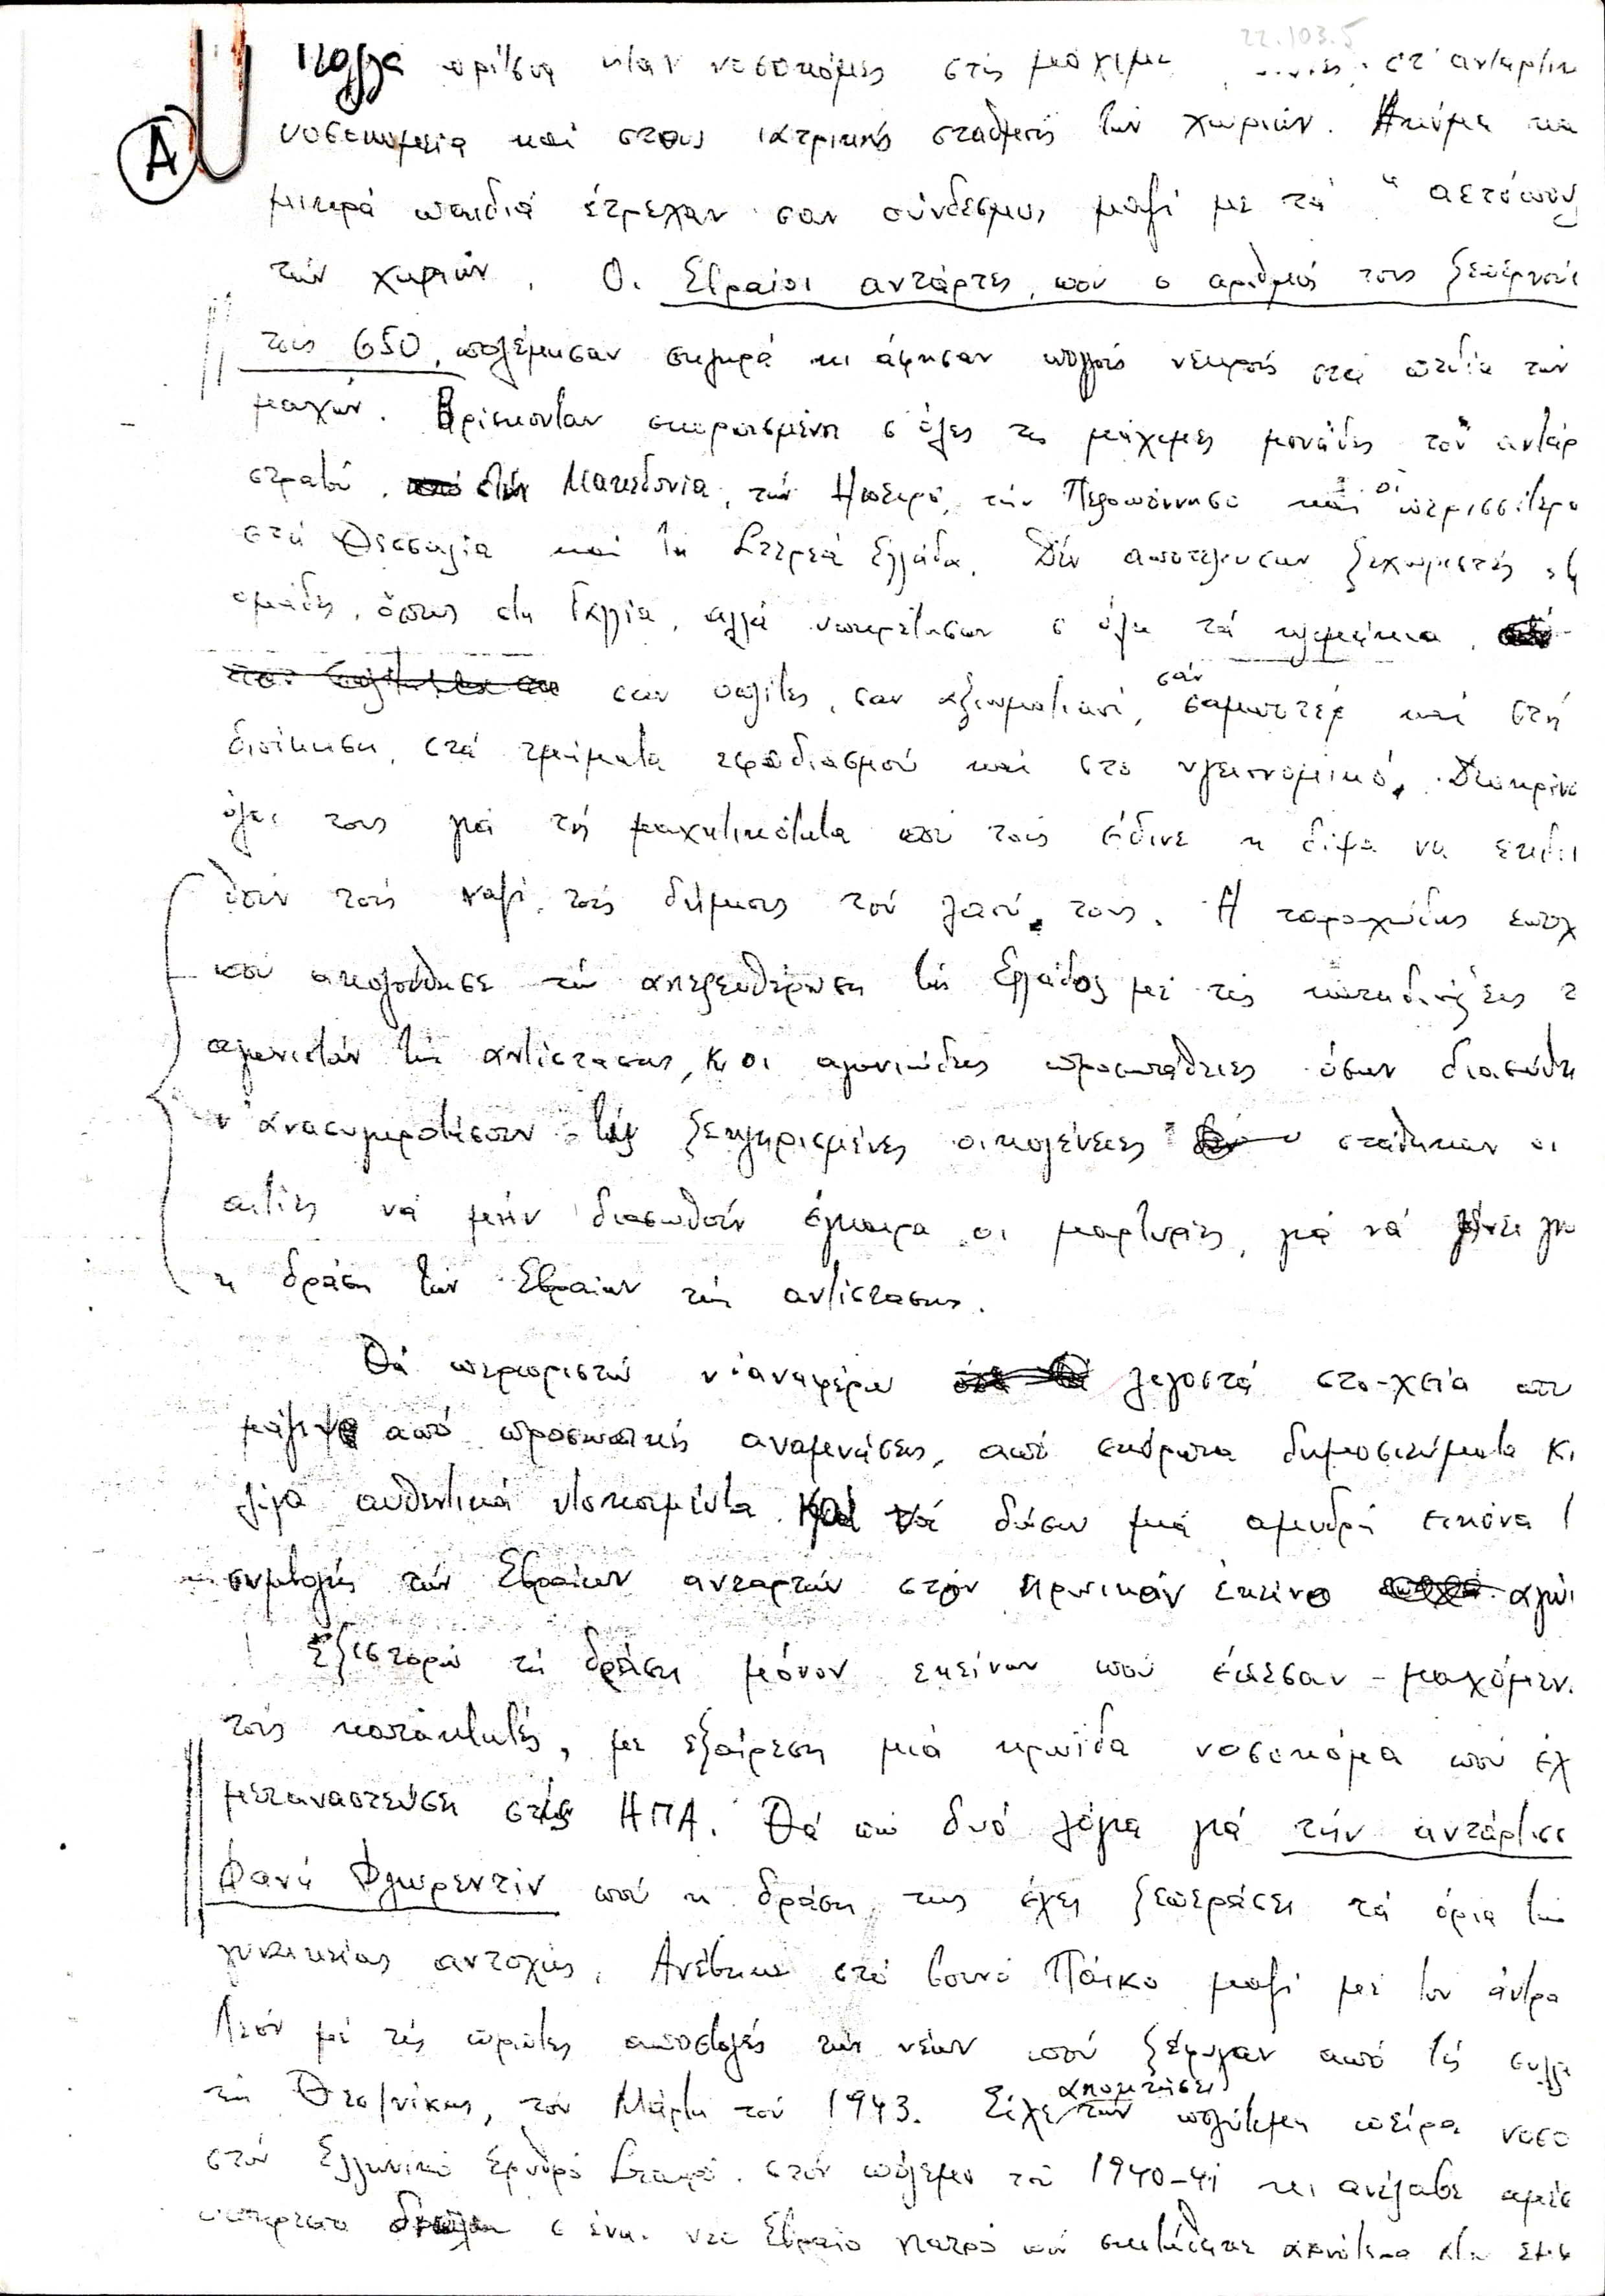 22.103.5
Α
Πολλά κορίτσια ήταν νοσοκόμες στις μάχιμες στ' αντάρτικα
νοσοκομεία και στους ιατρικούς σταθμούς των χωριών. Ακόμα και
μικρά παιδιά έτρεχαν σαν σύνδεσμοι μαζί με τα "αετόπουλ
των χωριών. Οι Εβραίοι αντάρτες, που ο αριθμός τους ξεπερνού
τους 650, πολέμησαν σκληρά κι άφησαν πολλούς νεκρούς στα πεδία των
μαχών. Βρίσκονταν σκορπισμένοι σ' όλες τις μάχιμες μονάδες του αντάρ
στρατού, στην Μακεδονία, την Ήπειρο, την Πελοπόννησο και οι περισσότερο
στη Θεσσαλία και τη Στερεά Ελλάδα. Δεν αποτέλεσαν ξεχωριστές
ομάδες, όπως στη Γαλλία, αλλά υπηρέτησαν σ' όλα τα κλιμάκια,
σαν οπλίτες, σαν αξιωματικοί, σαν σαμποτέρ και στη
διοίκηση, στα τμήματα εφοδιασμού και στο υγειονομικό. Διακρίνο
όλοι τους για τη μαχητικότητα που τους έδινε η δίψα να εκδι
θούν τους ναζί, τους δήμιους του λαού τους. Η ταραχώδης εποχ
που ακολούθησε την απελευθέρωση της Ελλάδος με τις καταδιώξεις τ
αγωνιστών της αντίστασης, κι οι αγωνιώδεις προσπάθειες όσων διασώθη
ν' ανασυγκροτήσουν τις ξεκληρισμένες οικογένειες στάθηκαν οι
αιτίες να μην διασωθούν έγκαιρα οι μαρτυρίες, για να γίνει γν
η δράση των Εβραίων της αντίστασης.
Θα περιοριστώ ν' αναφέρω λιγοστά στοιχεία που
μάζεψα από προσωπικές αναμνήσεις, από σκόρπια δημοσιεύματα κι
λίγα αυθεντικά ντοκουμέντα και να δώσω μια αμυδρή εικόνα τ
συμβολής των Εβραίων ανταρτών στον ηρωικόν εκείνο αγώ
Εξιστορώ τη δράση μόνον εκείνων που έπεσαν μαχόμεν
τους κατακτητές, με εξαίρεση μιά ηρωίδα νοσοκόμα που έχ
μεταναστεύσει στις ΗΠΑ. Θά πω δυό λόγια γιά την αντάρτισσ
Φανή Φλωρεντίν που η δράση της έχει ξεπεράσει τά όρια της
γυναικείας αντοχής. Ανέβηκε στό βουνό Πάικο μαζί με τον άντρα
Λεόν μέ τις πρώτες αποστολές των νέων πού ξέφυγαν από τη συλλ
της Θεσ/νίκης, τον Μάρτη του 1943. Είχε αποκτήσει την πολύτιμη πείρα νοσο
στον Ελληνικό Ερυθρό Σταυρό στόν πόλεμο του 1940-41 κι ανέλαβε αμέσ
υπηρεσία σ' ένα νέο Εβραίο γιατρό πού σκοτώθηκε αργότερα στη